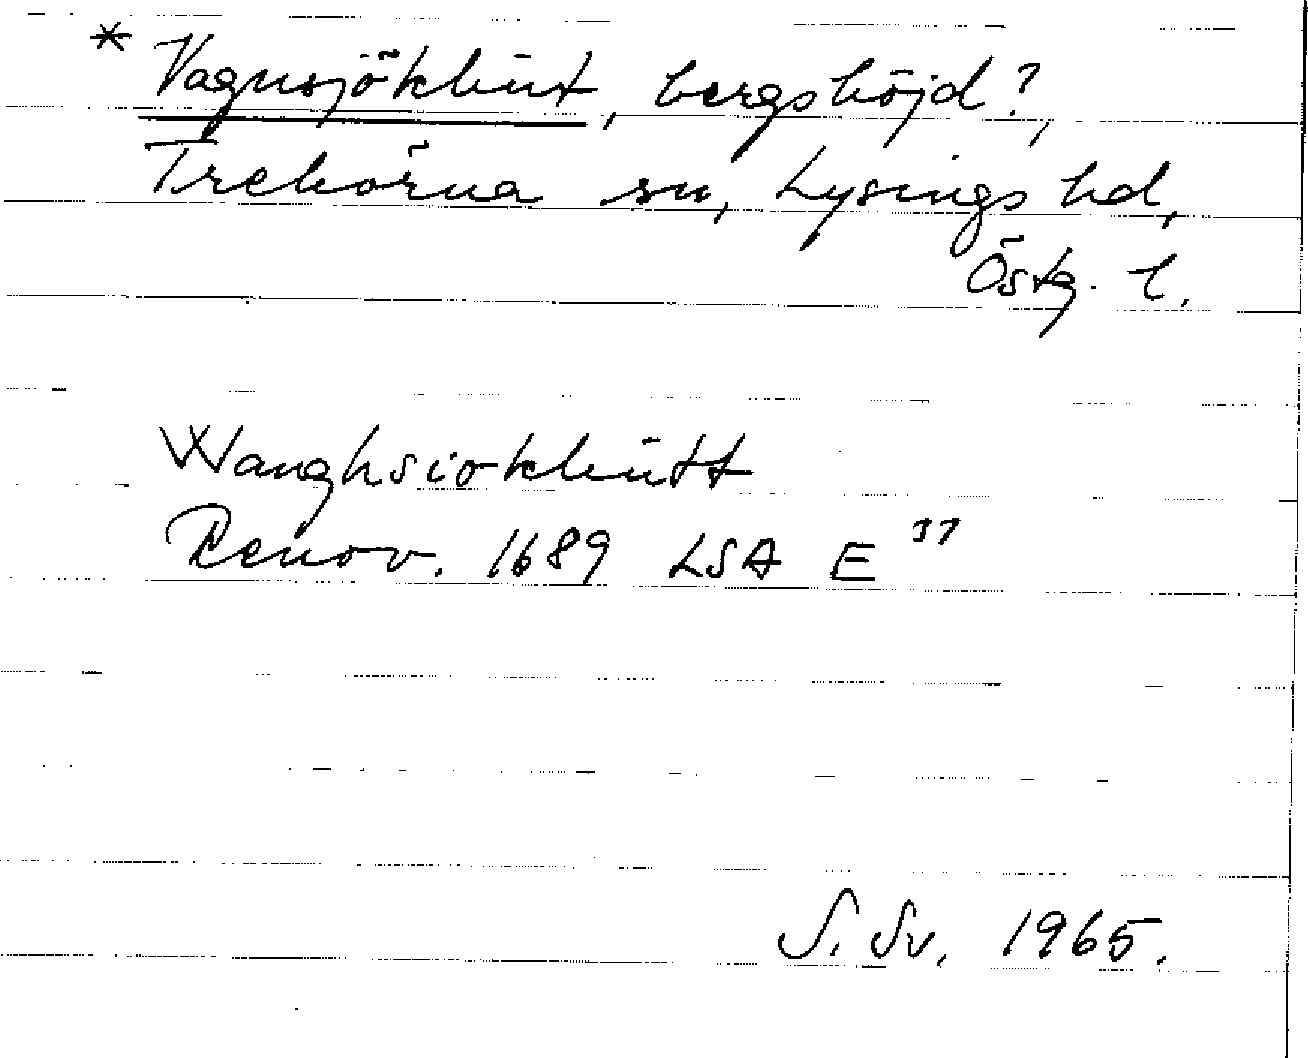 * Vagnsjöklint, bergshöjd?,
Trehörna sn, Lysings hd,
Östg. l.
Wanghsioklintt
Renov. 1689 LSA E 37
S. Sv. 1965.